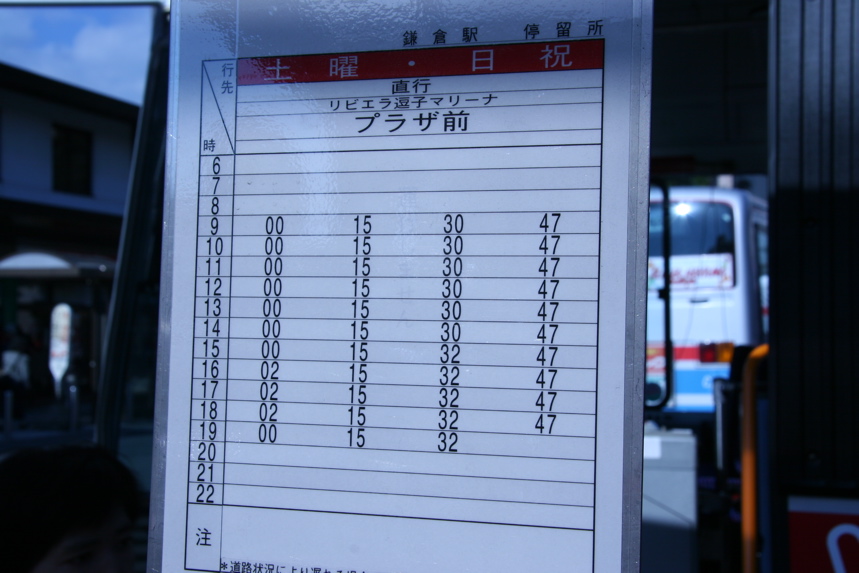 鎌倉駅 停留所
土曜・日祝
行先
直行
リビエラ逗子マリーナ
プラザ前
時
6
7
8
9 00 15 30 47
10 00 15 30 47
11 00 15 30 47
12 00 15 30 47
13 00 15 30 47
14 00 15 30 47
15 00 15 32 47
16 02 15 32 47
17 02 15 32 47
18 02 15 32 47
19 00 15 32
20
21
22
注
*道路状況により遅れる場合